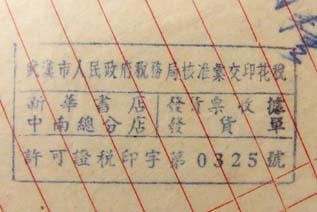 武漢市人民政府税務局核准彙交印花税
新華書店 發貨票收據
中南總分店 發貨單
許可證税印字第0325號